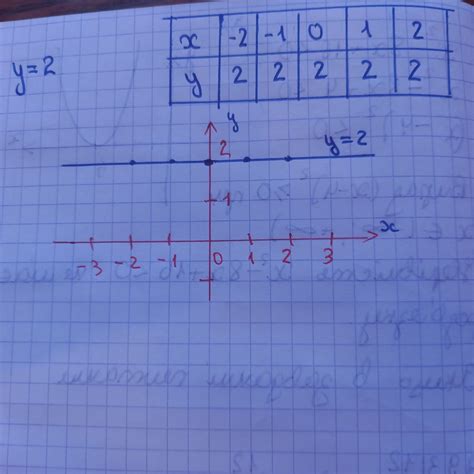 x -2 -1 0 1 2
y=2
y 2 2 2 2 2
y
2
y=2
1
x
-3 -2 -1 0 1 2 3